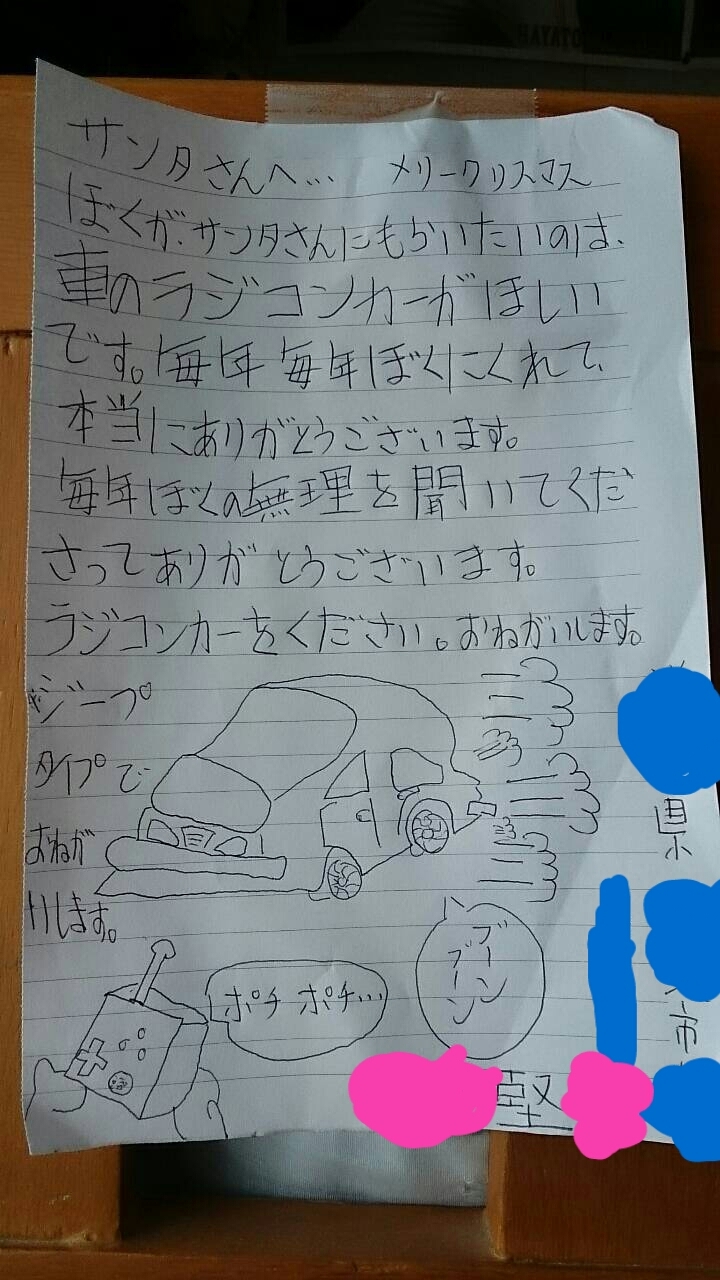 サンタさんへ… メリークリスマス
ぼくが、サンタさんにもらいたいのは、
車のラジコンカーがほしい
です。毎年毎年ぼくにくれて、
本当にありがとうございます。
毎年ぼくの無理を聞いてくだ
さってありがとうございます。
ラジコンカーをください。おねがいします。
ジープ
タイプで
おねが
いします。
ポチ ポチ…
ブーン
ブーン
県
市
堅